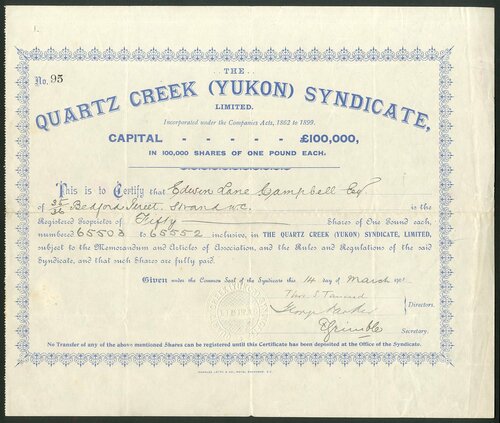 1.
No. 95
THE
QUARTZ CREEK (YUKON) SYNDICATE,
LIMITED.
Incorporated under the Companies Acts, 1862 to 1899.
CAPITAL - - - - - £100,000,
IN 100,000 SHARES OF ONE POUND EACH.
This is to Certify that Edwin Lane Campbell Esq
of 35/36 Bedford Street, Strand W.C. is the
Registered Proprietor of Fifty Shares of One Pound each,
numbered 65503 to 65552 inclusive, in THE QUARTZ CREEK (YUKON) SYNDICATE, LIMITED,
subject to the Memorandum and Articles of Association, and the Rules and Regulations of the said
Syndicate, and that such Shares are fully paid.
Given under the Common Seal of the Syndicate this 14 day of March
Directors.
George
Secretary.
No Transfer of any of the above mentioned Shares can be registered until this Certificate has been deposited at the Office of the Syndicate.